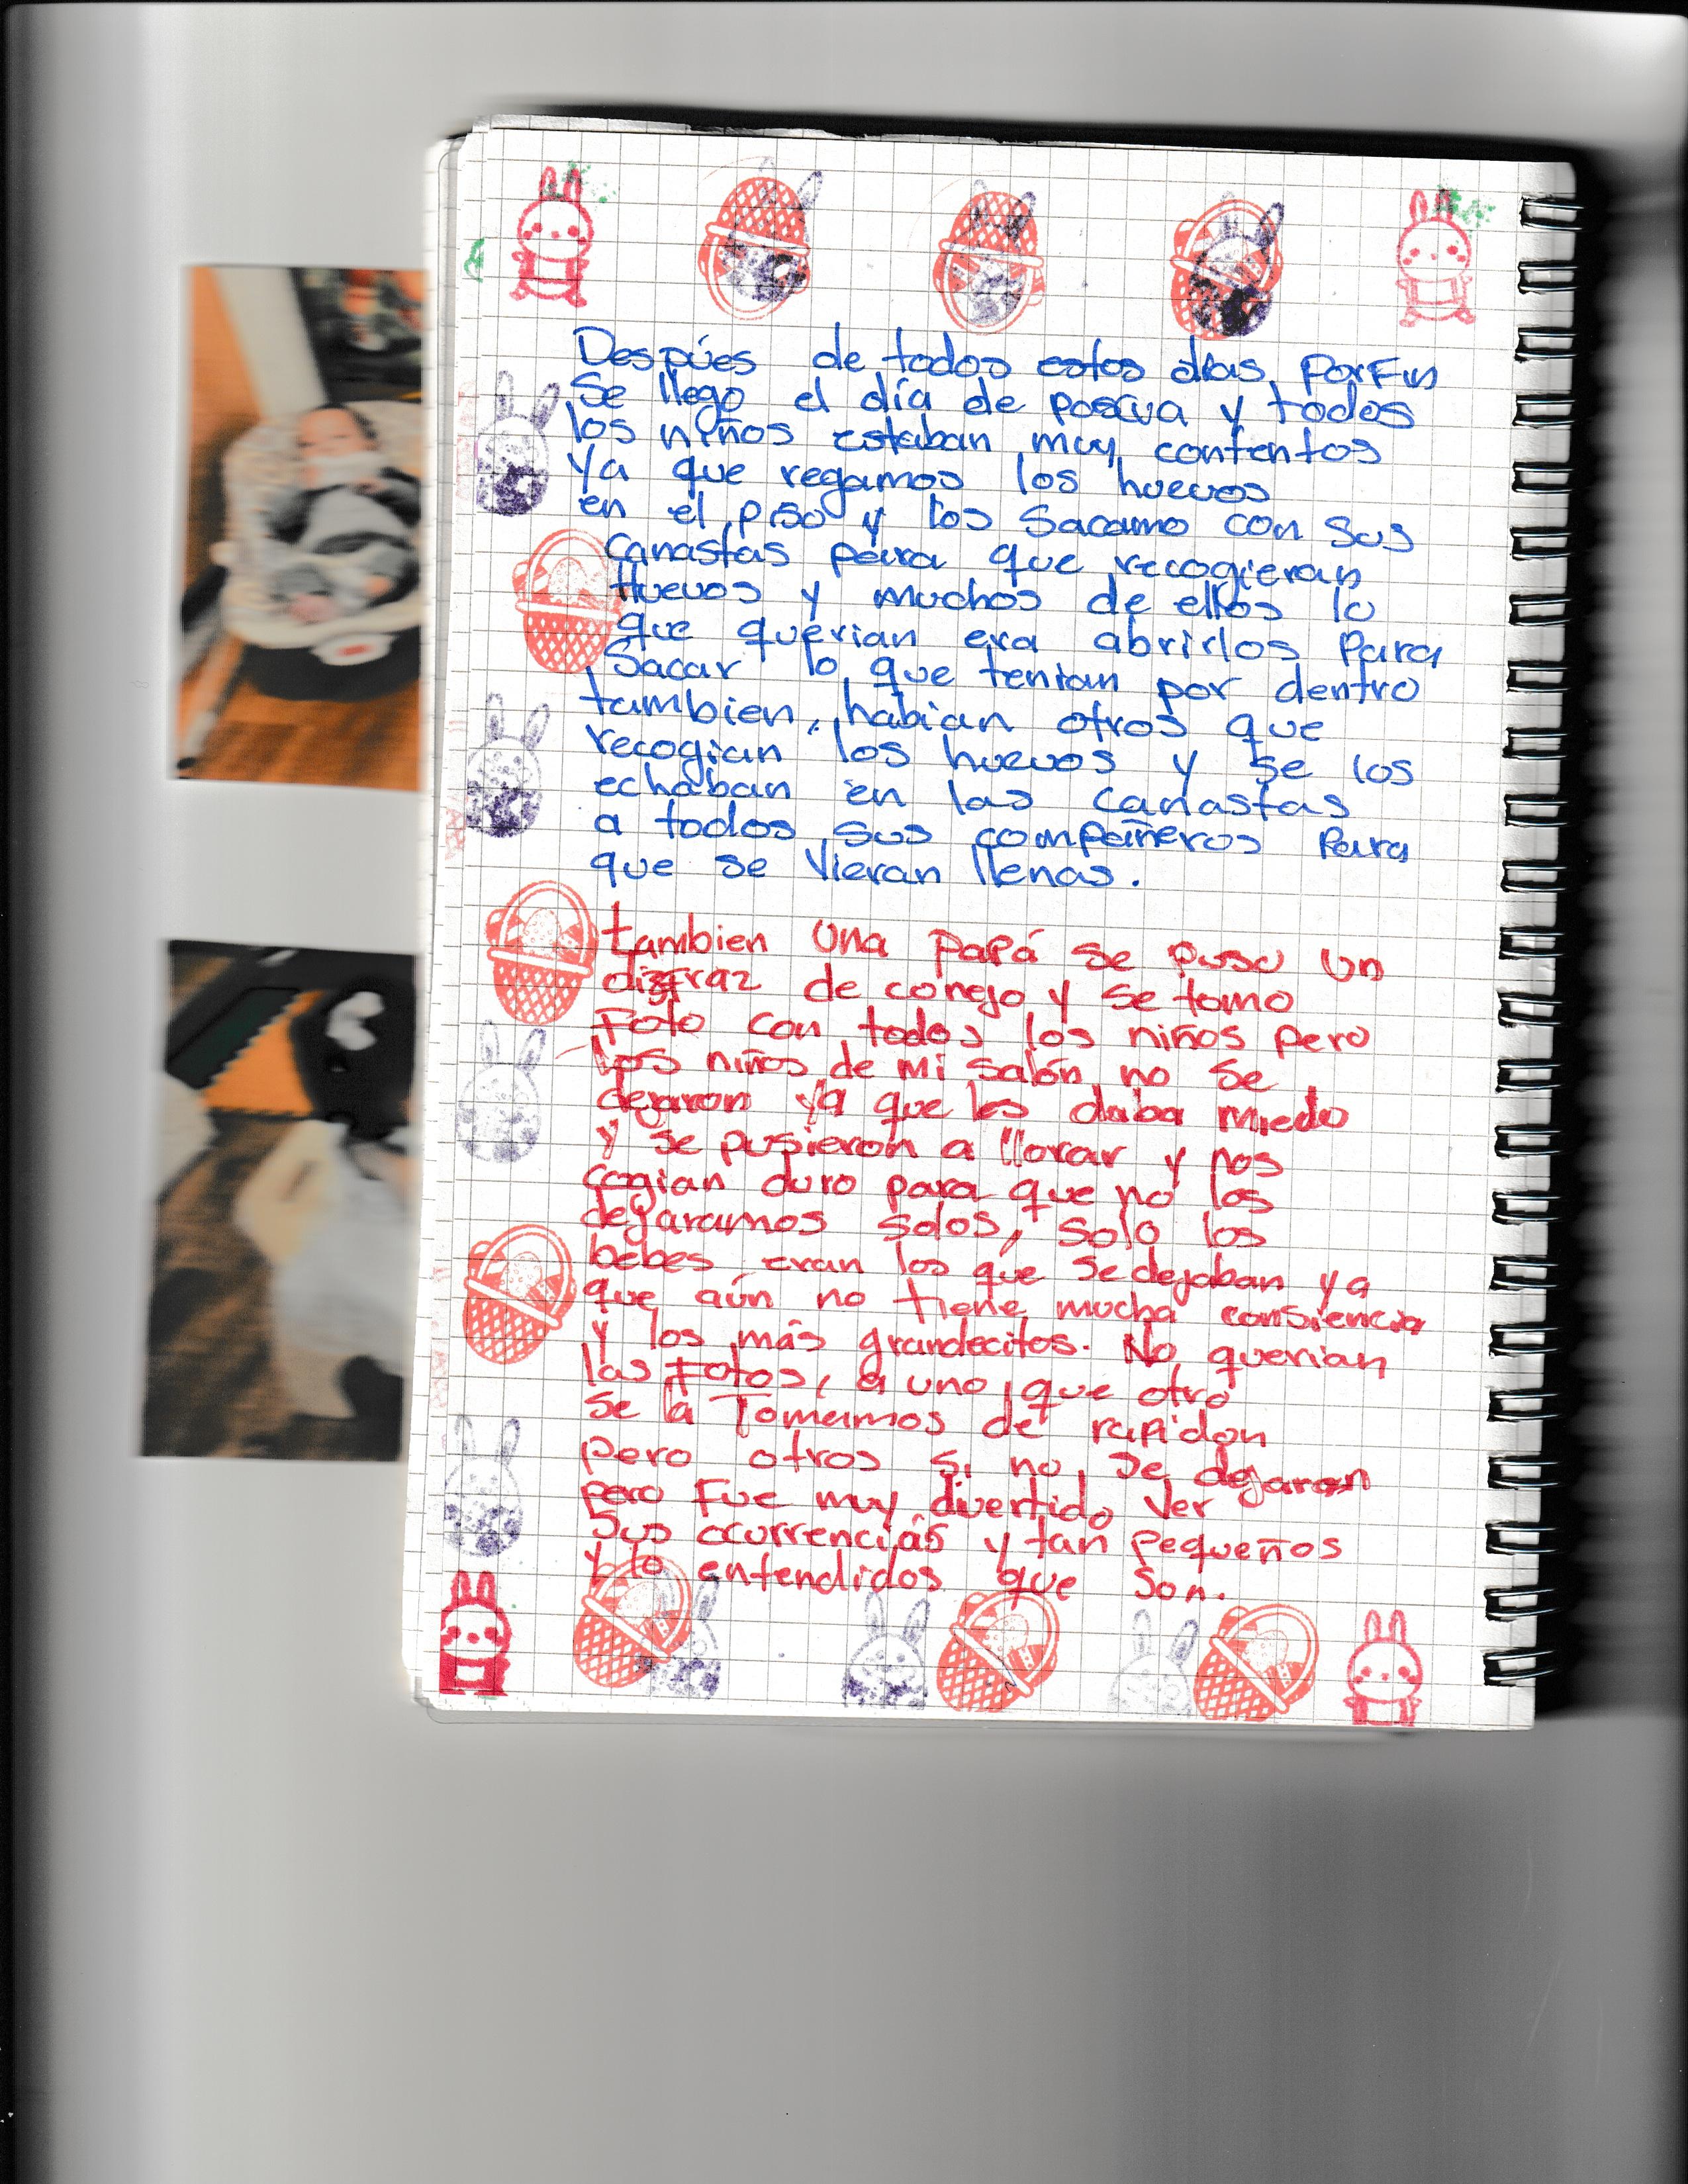 Despúes de todos estos días, PorFin
Se llego el día de pascua y todos
los niños estaban muy contentos
Ya que regamos los huevos
en el piso y los Sacamo con sus
canastas para que recogieran
Huevos y muchos de ellos lo
que querian era abrirlos Para
Sacar lo que tenian por dentro
tambien, habian otros que
recogian los huevos y se los
echaban en las canastas
a todos sus compañeros Para
que se vieran llenas.
tambien Una PaPá se puso Un
disfraz de conejo y se tomo
Foto con todos los niños pero
Los niños de mi salón no se
dejaron ya que les daba miedo
y se pusieron a llorar y nos
cogian duro para que no los
dejaramos solos, solo los
bebes eran los que se dejaban ya
que aún no tiene mucha consiencia
y los más grandecitos. No querian
las Fotos, a uno que otro
se la Tomamos de rapidon
pero otros si no se dejaron
pero Fue muy divertido Ver
Sus ocurrencias y tan Pequeños
y lo entendidos que son.